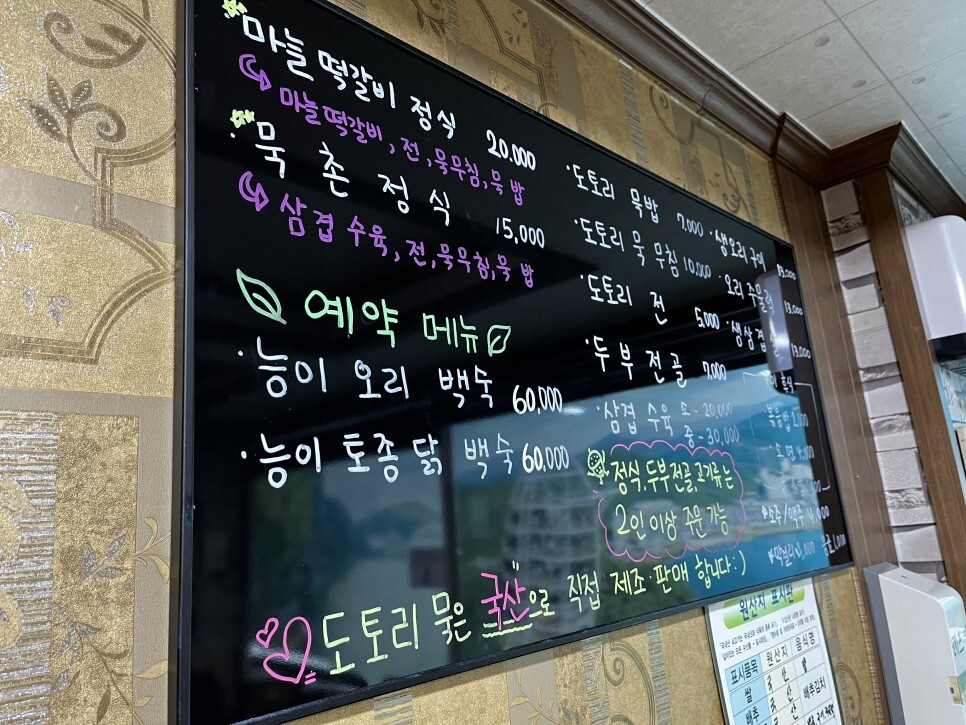 마늘 떡갈비 정식 20,000
마늘떡갈비, 전, 묵무침, 묵밥
묵 촌 정 식 15,000
삼겹 수육, 전, 묵무침, 묵밥
예약 메뉴
· 능이 오리 백숙 60,000
· 능이 토종 닭 백숙 60,000
· 도토리 묵밥 7,000
· 도토리 묵 무침 10,000
· 도토리 전 5,000
· 두부 전골 7,000
· 삼겹 수육 소 - 20,000
중 - 30,000
· 생오리 구이 13,000
· 오리 주물럭 13,000
· 생삼겹살 13,000
· 볶음밥 2,000
· 소주/맥주 4,000
정식, 두부전골, 고기류는
2인 이상 주문 가능
도토리 묵은 "국산"으로 직접 제조·판매 합니다:)
원산지 표시판
표시품목 원산지 음식명
쌀 국산 밥
배추 국산 배추김치